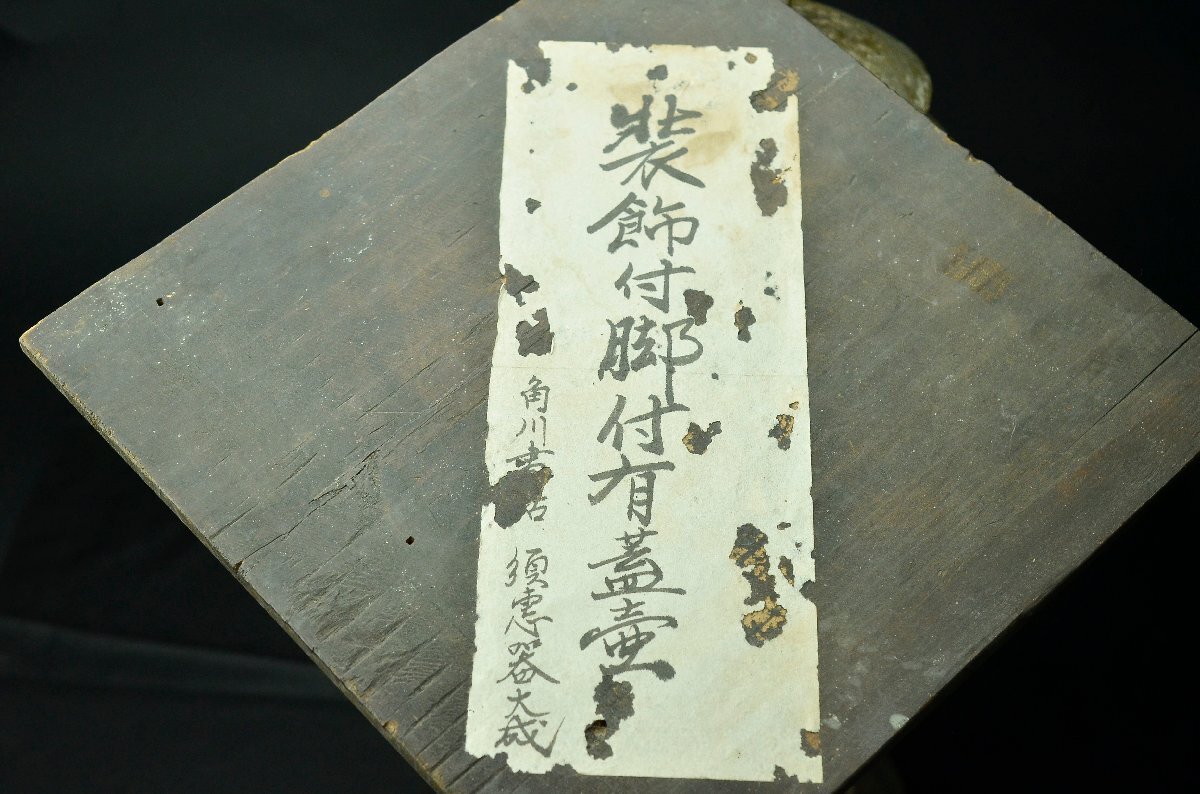 装飾付脚付有蓋壷
角川書店 須恵器大成